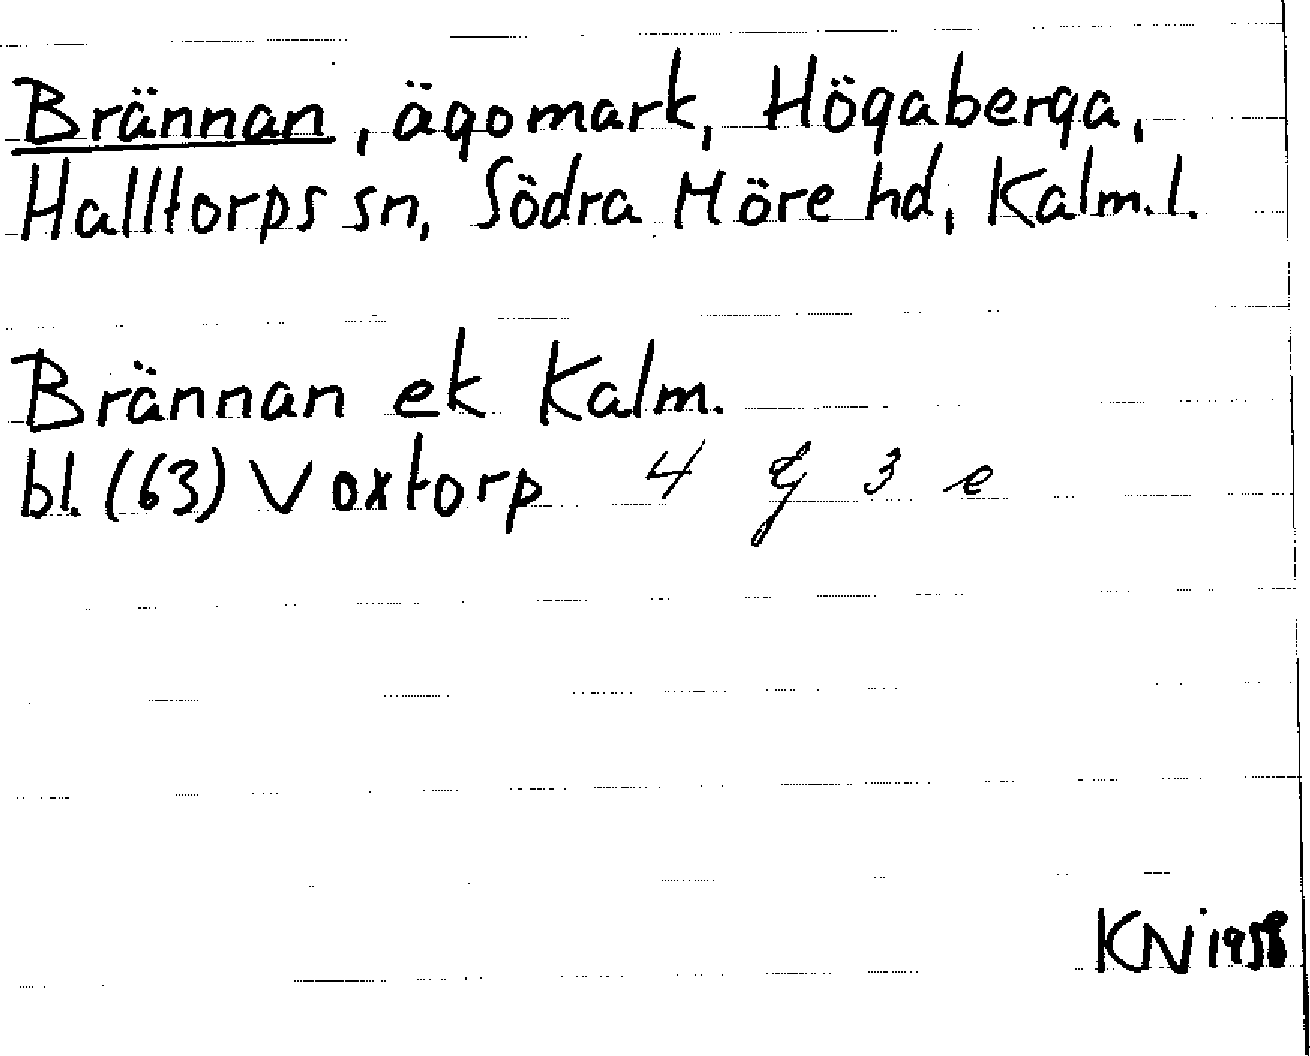 Brännan, ägomark, Högaberga,
Halltorps sn, Södra Möre hd, Kalm.l.
Brännan ek Kalm.
bl. (63) Voxtorp 4 G 3 e
KN 1958